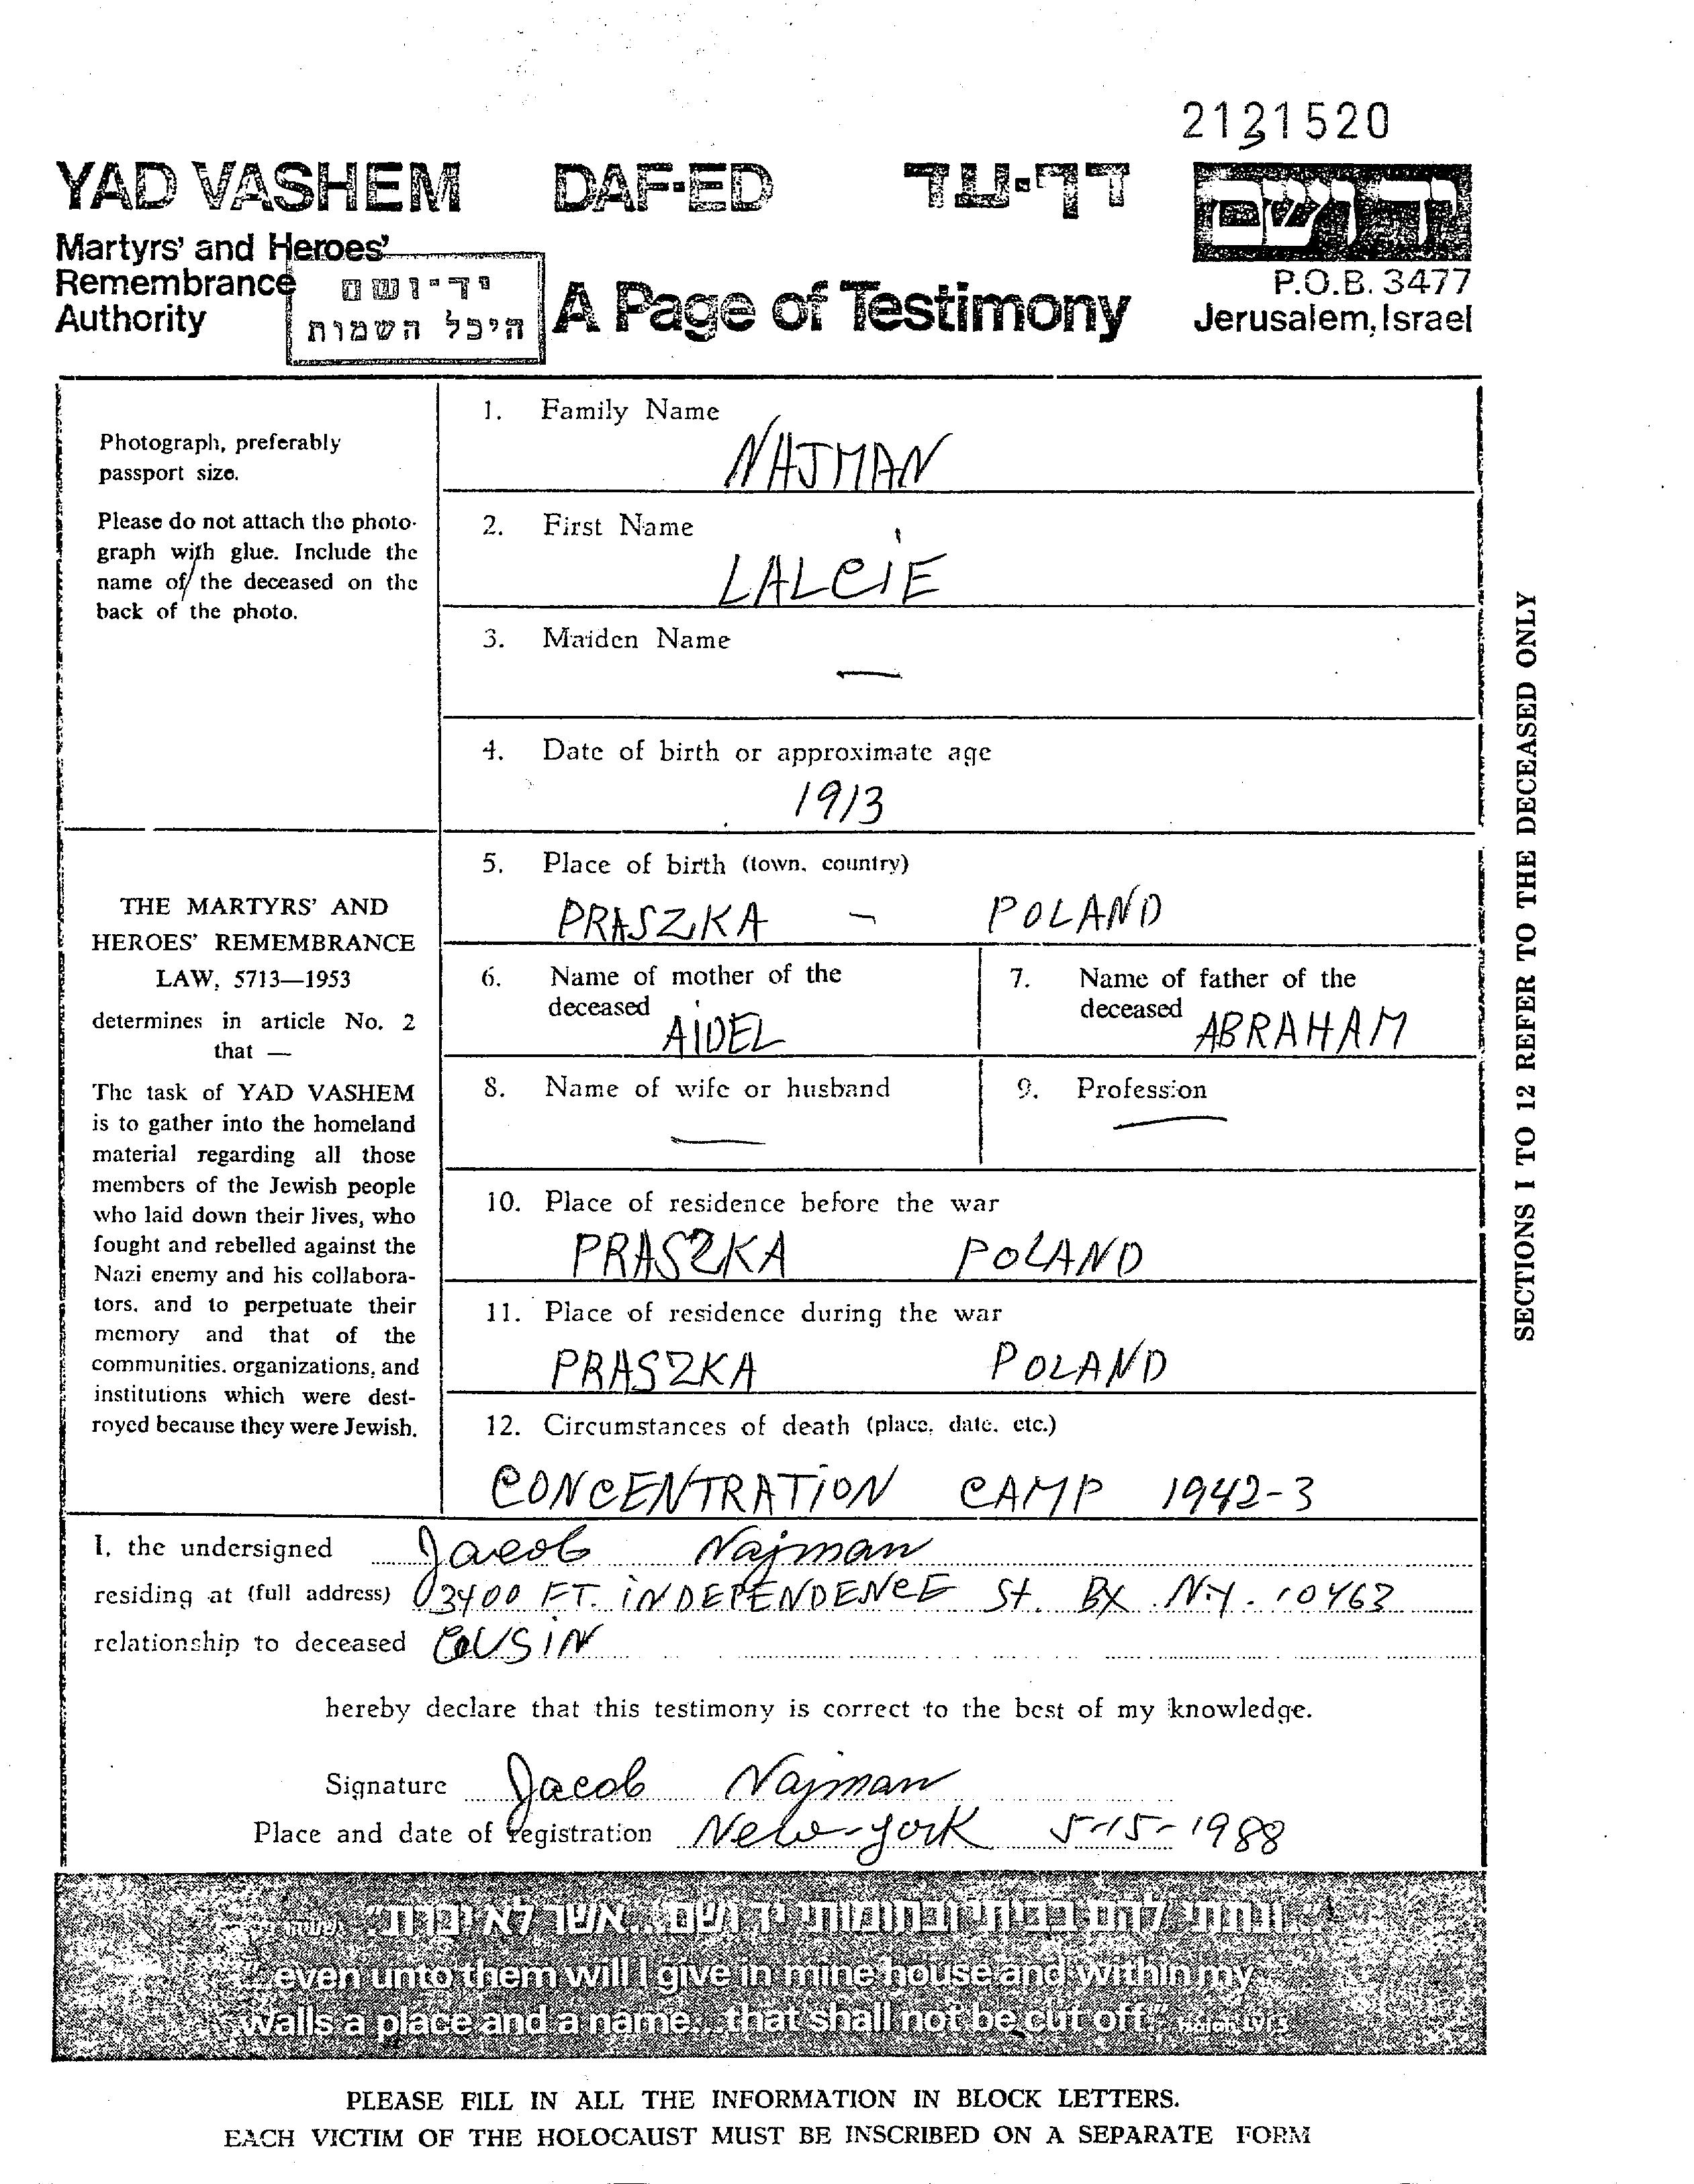 2121520
YAD VASHEM DAF-ED דף-עד ידושם
Martyrs' and Heroes'
Remembrance
Authority
יד-ושם
היכל השמות
A Page of Testimony
P.O.B. 3477
Jerusalem, Israel
Photograph, preferably
passport size.
Please do not attach the photo-
graph with glue. Include the
name of the deceased on the
back of the photo.
THE MARTYRS' AND
HEROES' REMEMBRANCE
LAW, 5713—1953
determines in article No. 2
that —
The task of YAD VASHEM
is to gather into the homeland
material regarding all those
members of the Jewish people
who laid down their lives, who
fought and rebelled against the
Nazi enemy and his collabora-
tors, and to perpetuate their
memory and that of the
communities, organizations, and
institutions which were dest-
royed because they were Jewish.
1. Family Name
NAJMAN
2. First Name
LALCIE
3. Maiden Name
—
4. Date of birth or approximate age
1913
5. Place of birth (town, country)
PRASZKA - POLAND
6. Name of mother of the
deceased AIDEL
7. Name of father of the
deceased ABRAHAM
8. Name of wife or husband
—
9. Profession
—
10. Place of residence before the war
PRASZKA POLAND
11. Place of residence during the war
PRASZKA POLAND
12. Circumstances of death (place, date, etc.)
CONCENTRATION CAMP 1942-3
SECTIONS 1 TO 12 REFER TO THE DECEASED ONLY
I, the undersigned Jacob Najman
residing at (full address) 3400 FT. INDEPENDENCE St. BX N.Y. 10463
relationship to deceased COUSIN
hereby declare that this testimony is correct to the best of my knowledge.
Signature Jacob Najman
Place and date of registration New-York 5-15-1988
"...ונתתי להם בביתי ובחומותי יד ושם...אשר לא יכרת"
"...even unto them will I give in mine house and within my
walls a place and a name...that shall not be cut off" Isaiah, LVI 5
PLEASE FILL IN ALL THE INFORMATION IN BLOCK LETTERS.
EACH VICTIM OF THE HOLOCAUST MUST BE INSCRIBED ON A SEPARATE FORM